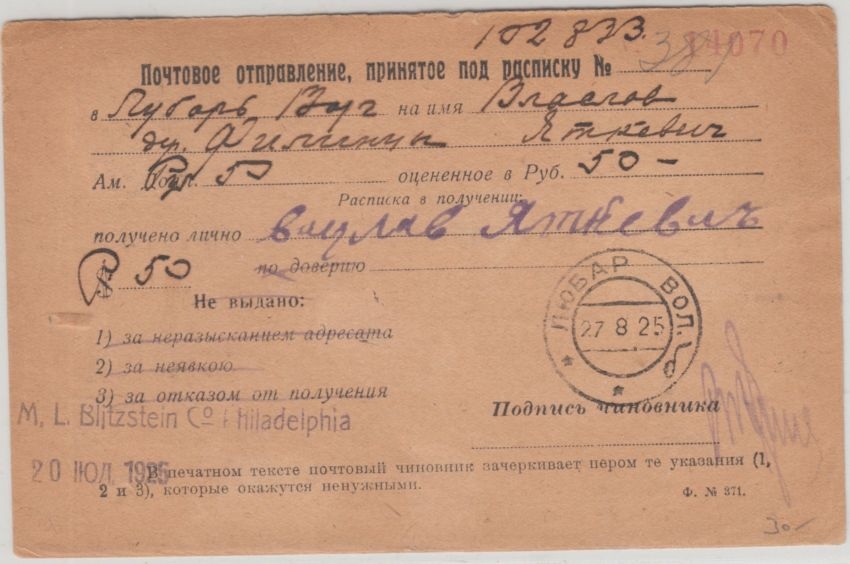 102833.
14070
Почтовое отправление, принятое под расписку №
в Любарь Вол. на имя Вацлав
Яткевич
Ам. 50 оцененное в Руб. 50 —
Расписка в получении:
получено лично вацлав Яткевичъ
50 по доверию
Не выдано:
1) за неразысканием адресата
2) за неявкою
3) за отказом от получения
ЛЮБАР ВОЛ.
27 8 25
Подпись чиновника
M. L. Blitzstein Co Philadelphia
20 ИЮЛ. 1925
В печатном тексте почтовый чиновник зачеркивает пером те указания (1,
2 и 3), которые окажутся ненужными.
Ф. № 371.
30-